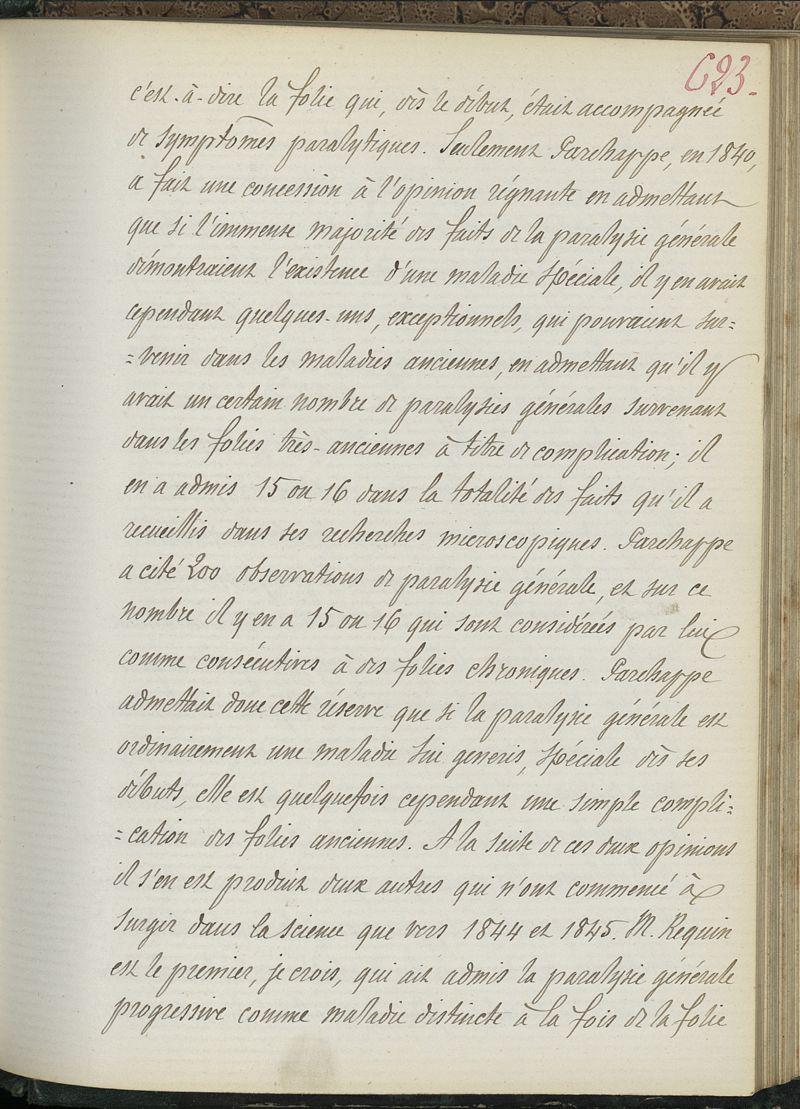 623.
c'est-à-dire la folie qui, dès le début, était accompagnée
de symptômes paralytiques. Seulement Parchappe, en 1840,
a fait une concession à l'opinion régnante en admettant
que si l'immense majorité des faits de la paralysie générale
démontraient l'existence d'une maladie spéciale, il y en avait
cependant quelques-uns, exceptionnels, qui pouvaient sur=
=venir dans les maladies anciennes, en admettant qu'il y
avait un certain nombre de paralysies générales survenant
dans les folies très-anciennes à titre de complication; il
en a admis 15 ou 16 dans la totalité des faits qu'il a
recueillis dans ses recherches microscopiques. Parchappe
a cité 200 observations de paralysie générale, et sur ce
nombre il y en a 15 ou 16 qui sont considérées par lui
comme consécutives à des folies chroniques. Parchappe
admettait donc cette réserve que si la paralysie générale est
ordinairement une maladie sui generis, spéciale dès ses
débuts, elle est quelquefois cependant une simple compli=
=cation des folies anciennes. A la suite de ces deux opinions
il s'en est produit deux autres qui n'ont commencé à
surgir dans la science que vers 1844 et 1845. M. Requin
est le premier, je crois, qui ait admis la paralysie générale
progressive comme maladie distincte à la fois de la folie